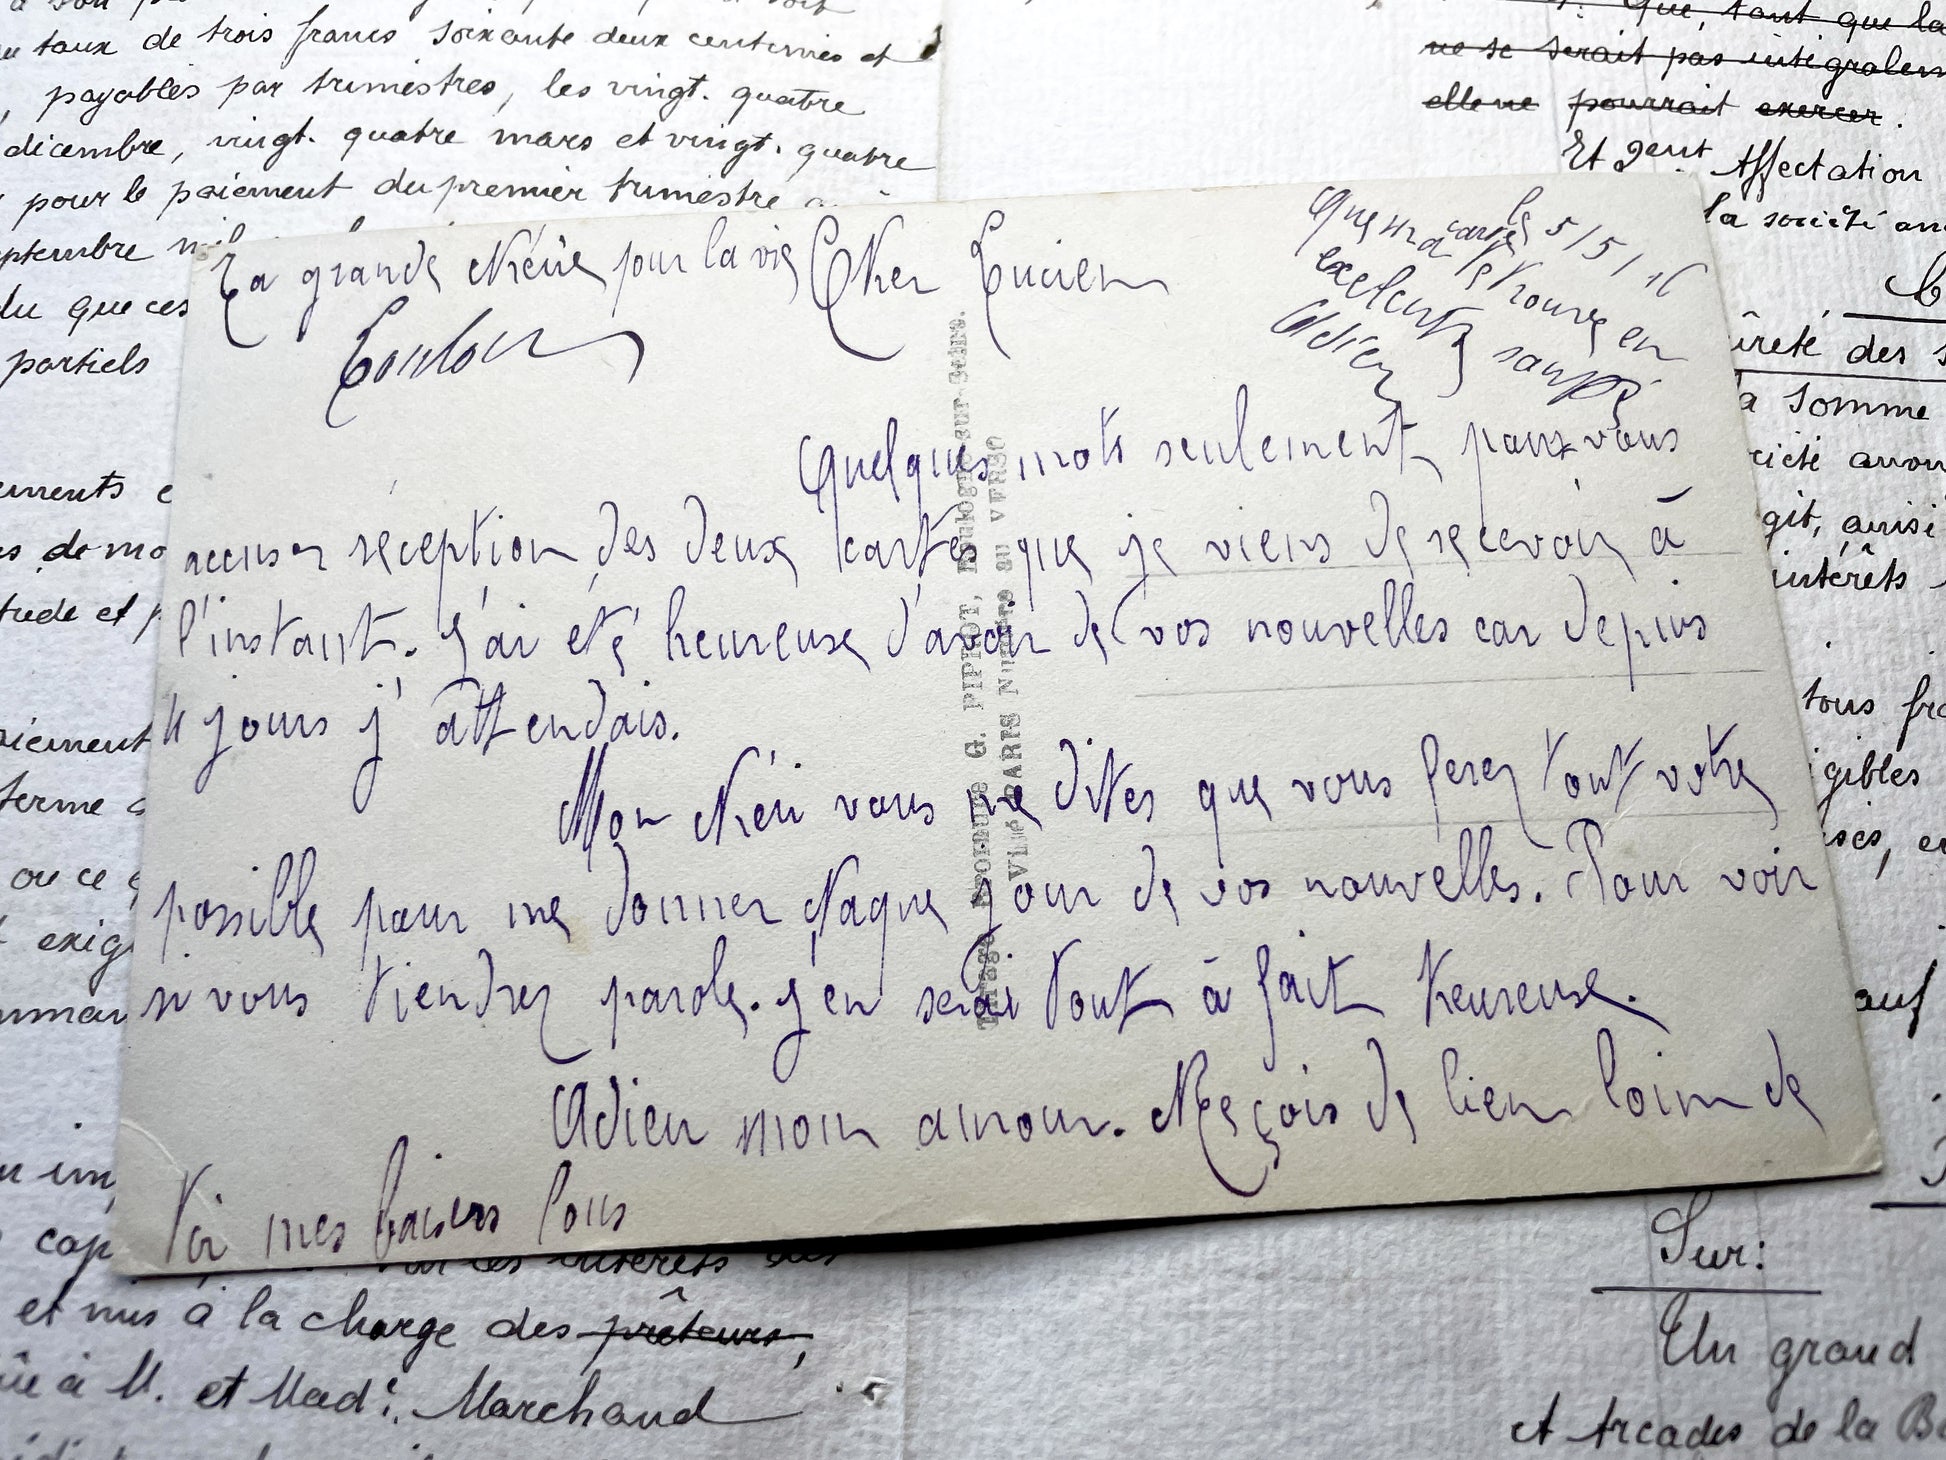 taux de trois francs soixante deux centimes et
payables par trimestres, les vingt. quatre
décembre, vingt. quatre mars et vingt. quatre
pour le paiement du premier trimestre
ptembre
du que ces
partiels
ements
de mo
tude et
aiement
terme
ou ce
exig
mmar
im
cap
intérêts des
et mis à la charge des prêteurs,
à M. et Mad.e Marchand
que, tant que la
ne se serait pas intégralem
elle ne pourrait exercer.
Et gent. Affectation
la société an
ûreté des s
a somme
ciété avon
git, ainsi
intérêts
tous fra
igibles
ises, e
auf
Sur:
Un grand
et Arcades de la Ba
le 5/5/16
Que ma carte
te trouve en
exelente santé
Adieu
Ta grande chérie pour la vie
Toulon
Cher Lucien
Quelques mots seulement pour vous
accuser réception des deux cartes que je viens de recevoir à
l'instant. J'ai été heureuse d'avoir de vos nouvelles car depuis
4 jours j'attendais.
Mon chéri vous me dites que vous ferez tout votre
possible pour me donner chaque jour de vos nouvelles. Pour voir
si vous tiendrez parole. J'en serai tout à fait heureuse.
Adieu mon amour. Reçois de bien loin de
toi mes baisers fous
Tirage G. PIPROT, Boulogne-sur-Seine.
VISÉ PARIS Numéro au VERSO